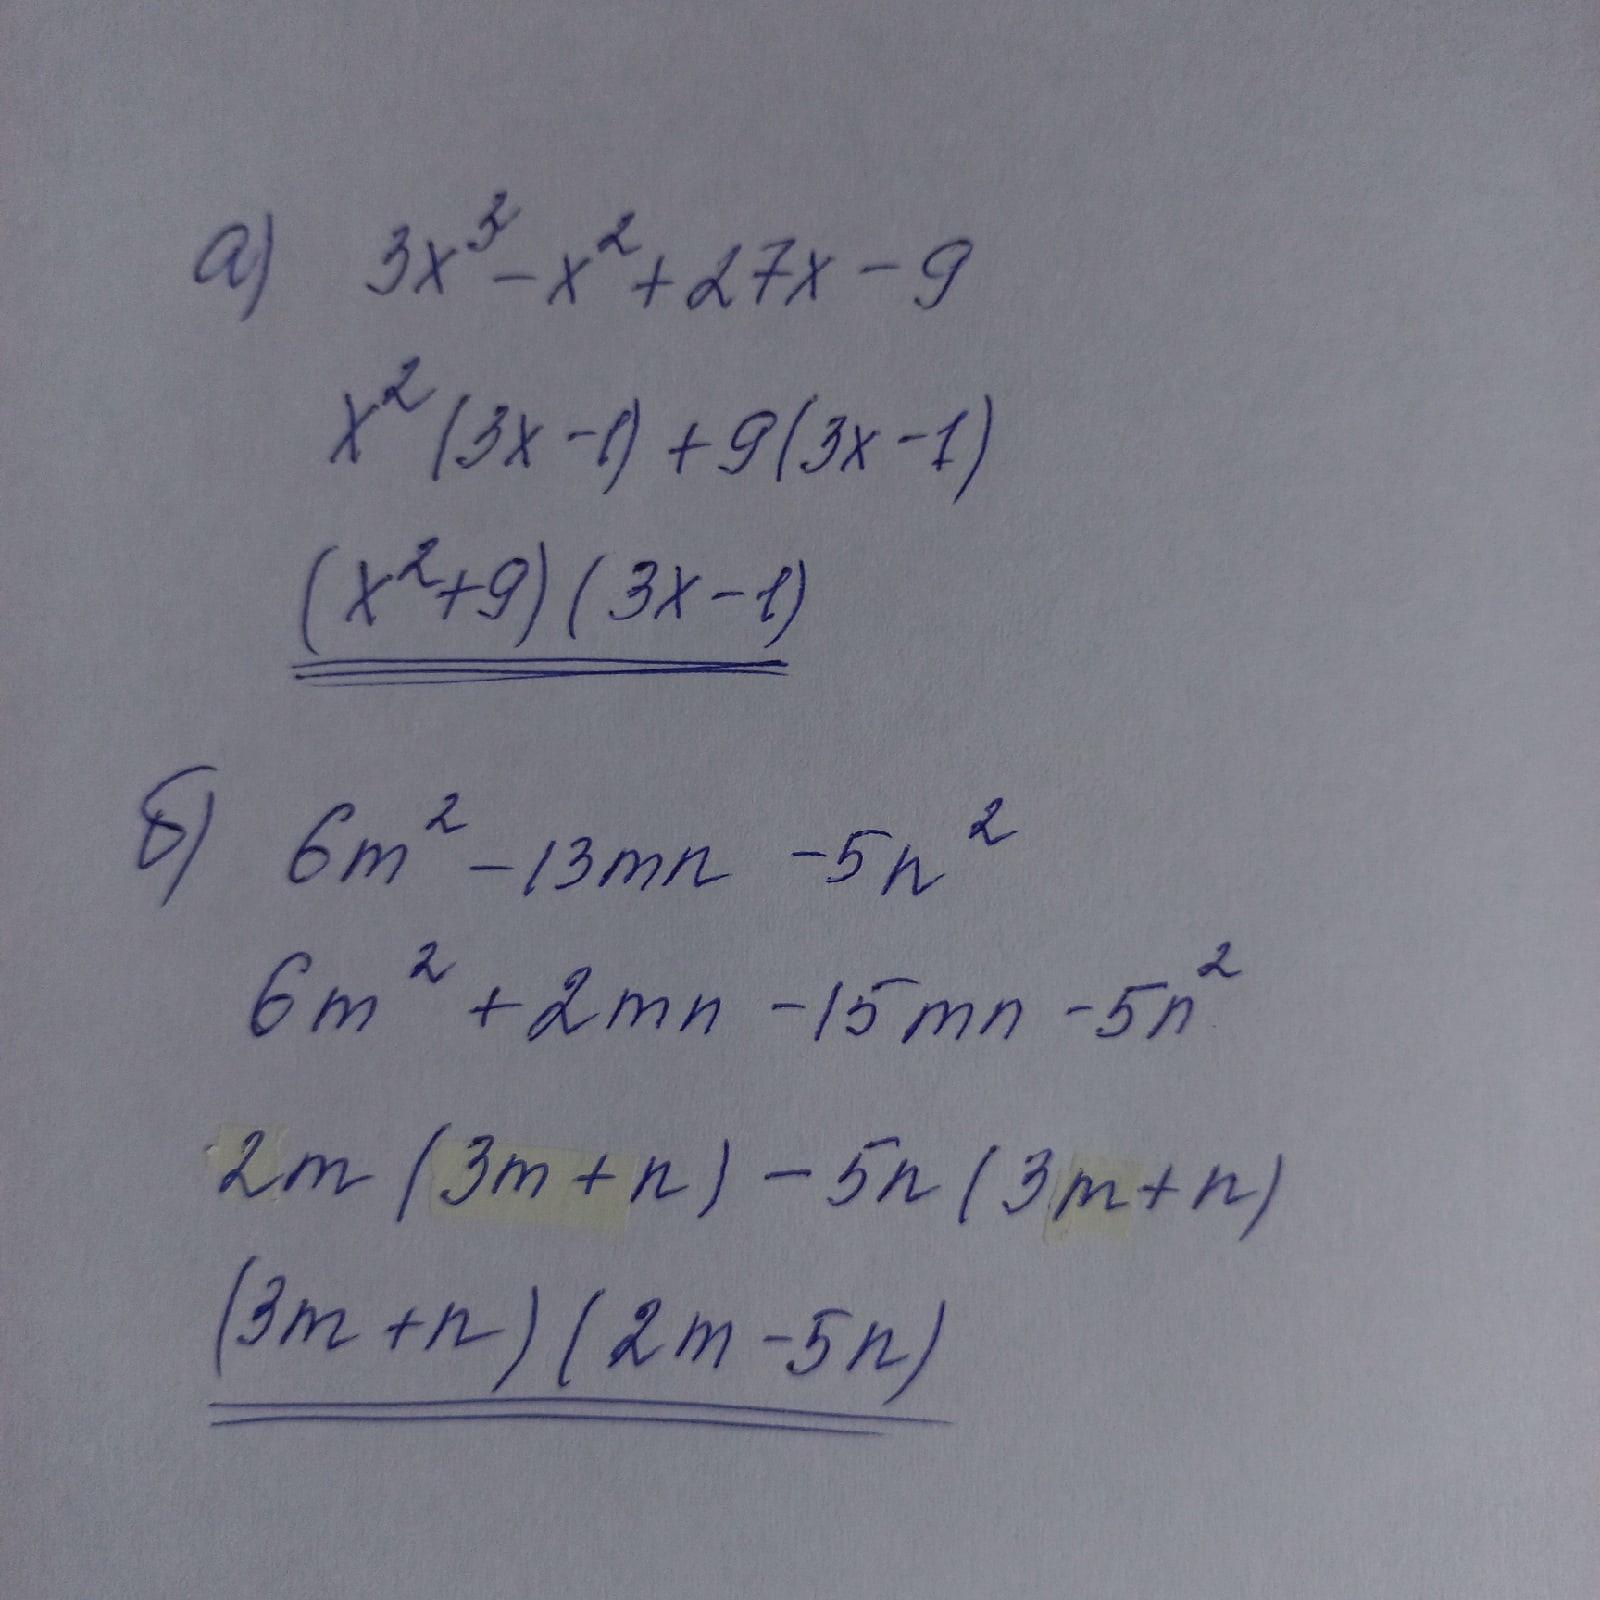 а) 3x³ - x² + 27x - 9
x² (3x - 1) + 9(3x - 1)
(x² + 9) (3x - 1)
б) 6m² - 13mn - 5n²
6m² + 2mn - 15mn - 5n²
2m (3m + n) - 5n (3m + n)
(3m + n) (2m - 5n)